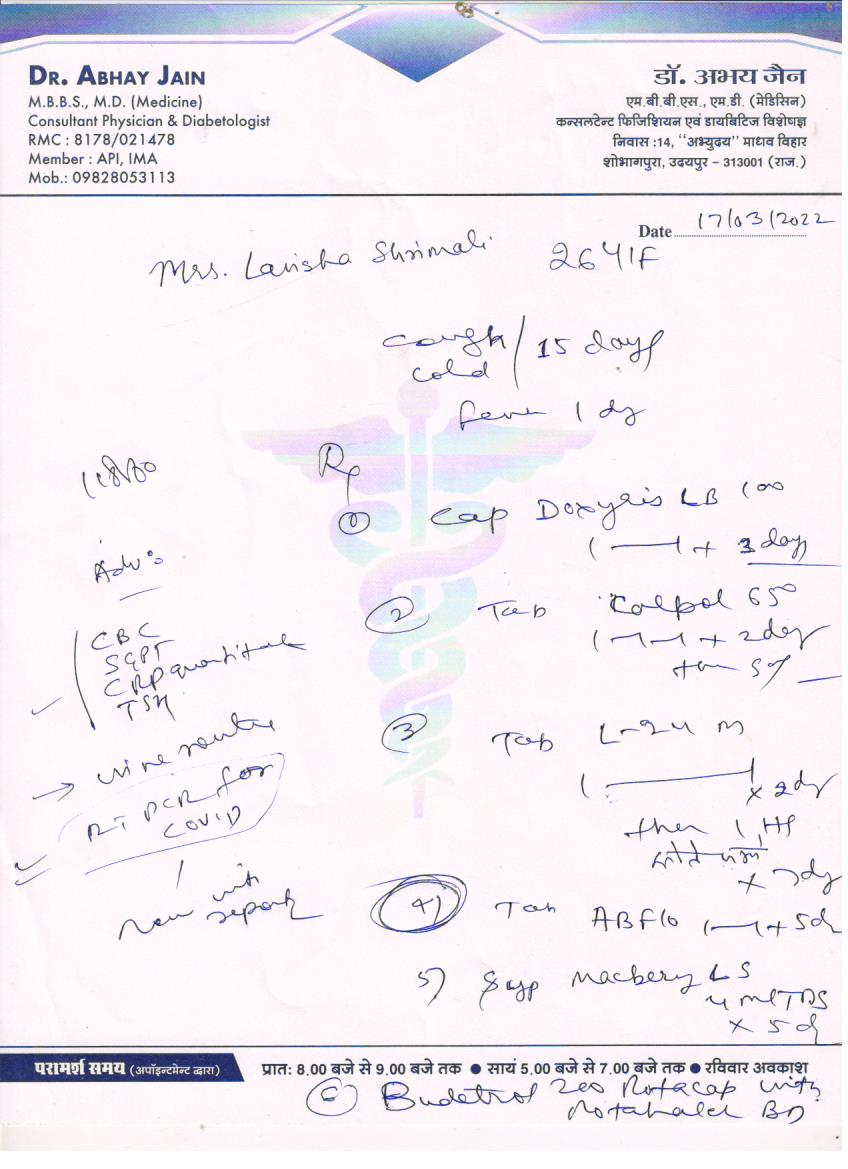 DR. ABHAY JAIN
M.B.B.S., M.D. (Medicine)
Consultant Physician & Diabetologist
RMC : 8178/021478
Member : API, IMA
Mob.: 09828053113
डॉ. अभय जैन
एम.बी.बी.एस., एम.डी. (मेडिसिन)
कन्सलटेन्ट फिजिशियन एवं डायबिटिज विशेषज्ञ
निवास :14, "अभ्युदय" माधव विहार
शोभागपुरा, उदयपुर – 313001 (राज.)
Date 17/03/2022
Mrs. Lavisha Shrimali
cough
cold 15 days
fever 1 dy
Rx
① Cap Doxyris LB 100
3 days
② Tab Calpol 650
2 day
③ Tab L-
x 2 dy
then 1 HS
④ Tab ABFlo 5 d
5) Syp Macbery LS
4 ml TDS
x 5 d
⑥ Budetrol 200 Rotacap with
Rotahaler BD
118/80
Adv:
CBC
SGPT
CRP quantitative
TSH
→ urine routine
RT PCR for
COVID
with
report
परामर्श समय (अपॉइन्टमेन्ट द्वारा)
प्रात: 8.00 बजे से 9.00 बजे तक ● सायं 5.00 बजे से 7.00 बजे तक ● रविवार अवकाश